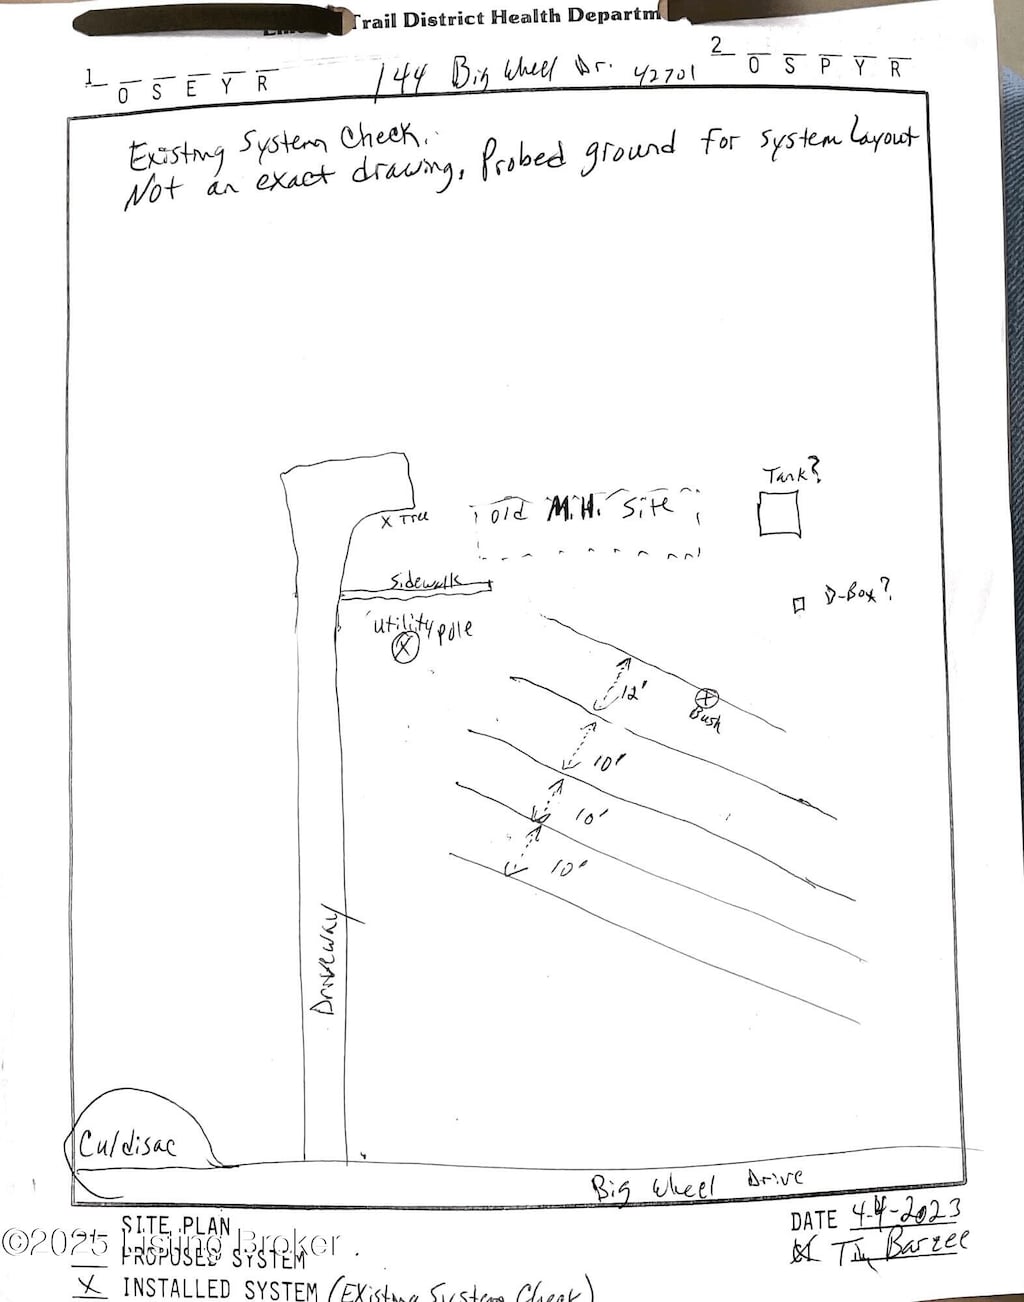 Trail District Health Departm
1 O S E Y R
144 Big Wheel Dr. 42701
2 O S P Y R
Existing System Check.
Not an exact drawing, Probed ground for system Layout
Tank?
old M.H. Site
X Tree
Sidewalk
D-Box?
utility pole
X
12'
X
Bush
10'
10'
10'
Driveway
Culdisac
Big Wheel Drive
SITE PLAN
DATE 4-4-2023
©2025 Listing Broker
PROPOSED SYSTEM
Barzee
X INSTALLED SYSTEM (Existing System Check)